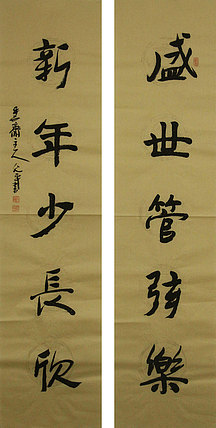 盛世管弦樂
新年少長欣